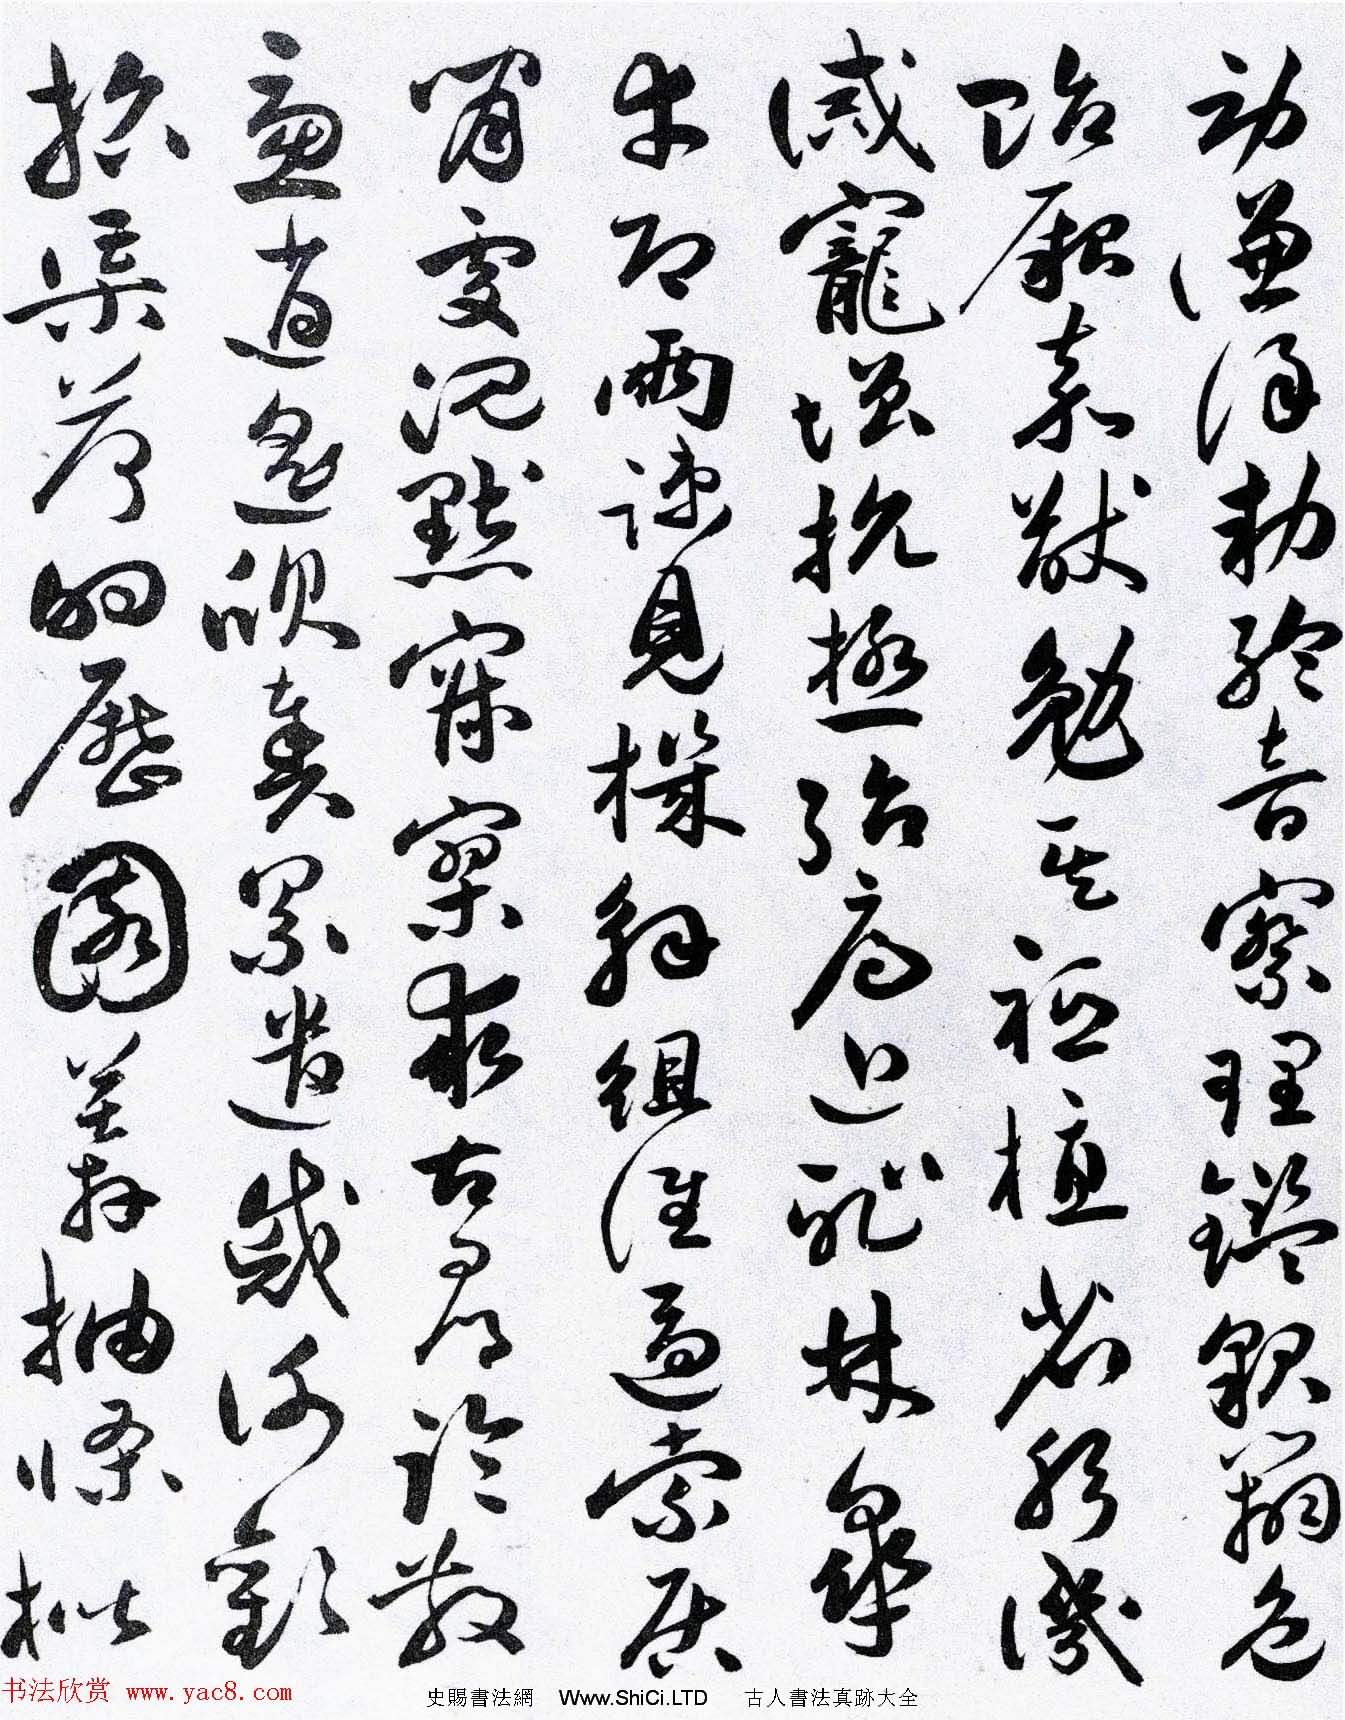 劳謙謹勅聆音察理鑑貌辨色
貽厥嘉猷勉其祗植省躬譏
誡寵增抗極殆辱近恥林皋
幸即兩疏見機解組誰逼索居
閑處沉默寂寥求古尋論散
慮逍遙欣奏累遣慼謝歡
招渠荷的歷園莽抽條枇
书法欣赏 www.yac8.com
史賜書法網 Www.ShiCi.LTD 古人書法真跡大全